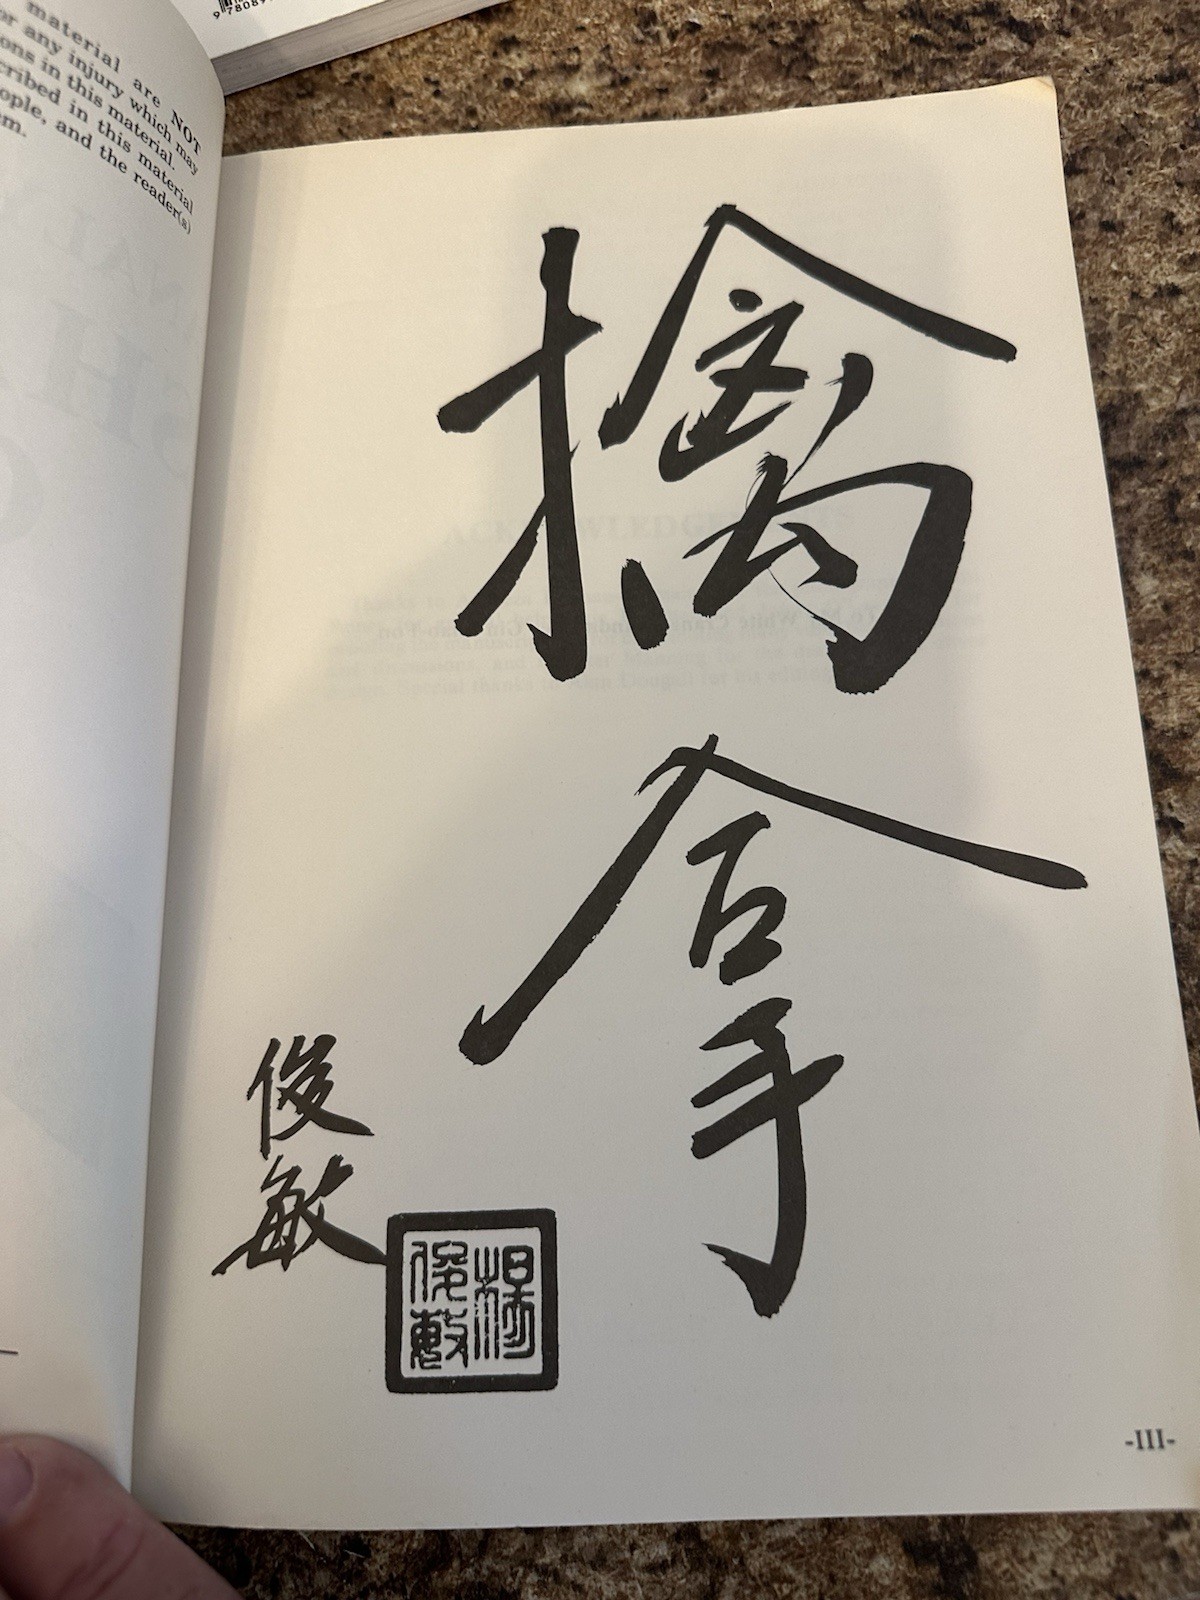 9 78089
material are NOT
or any injury which may
ons in this material.
cribed in this material
ople, and the reader(s)
em.
擒
拿
俊
敏
楊
俊敏
-III-